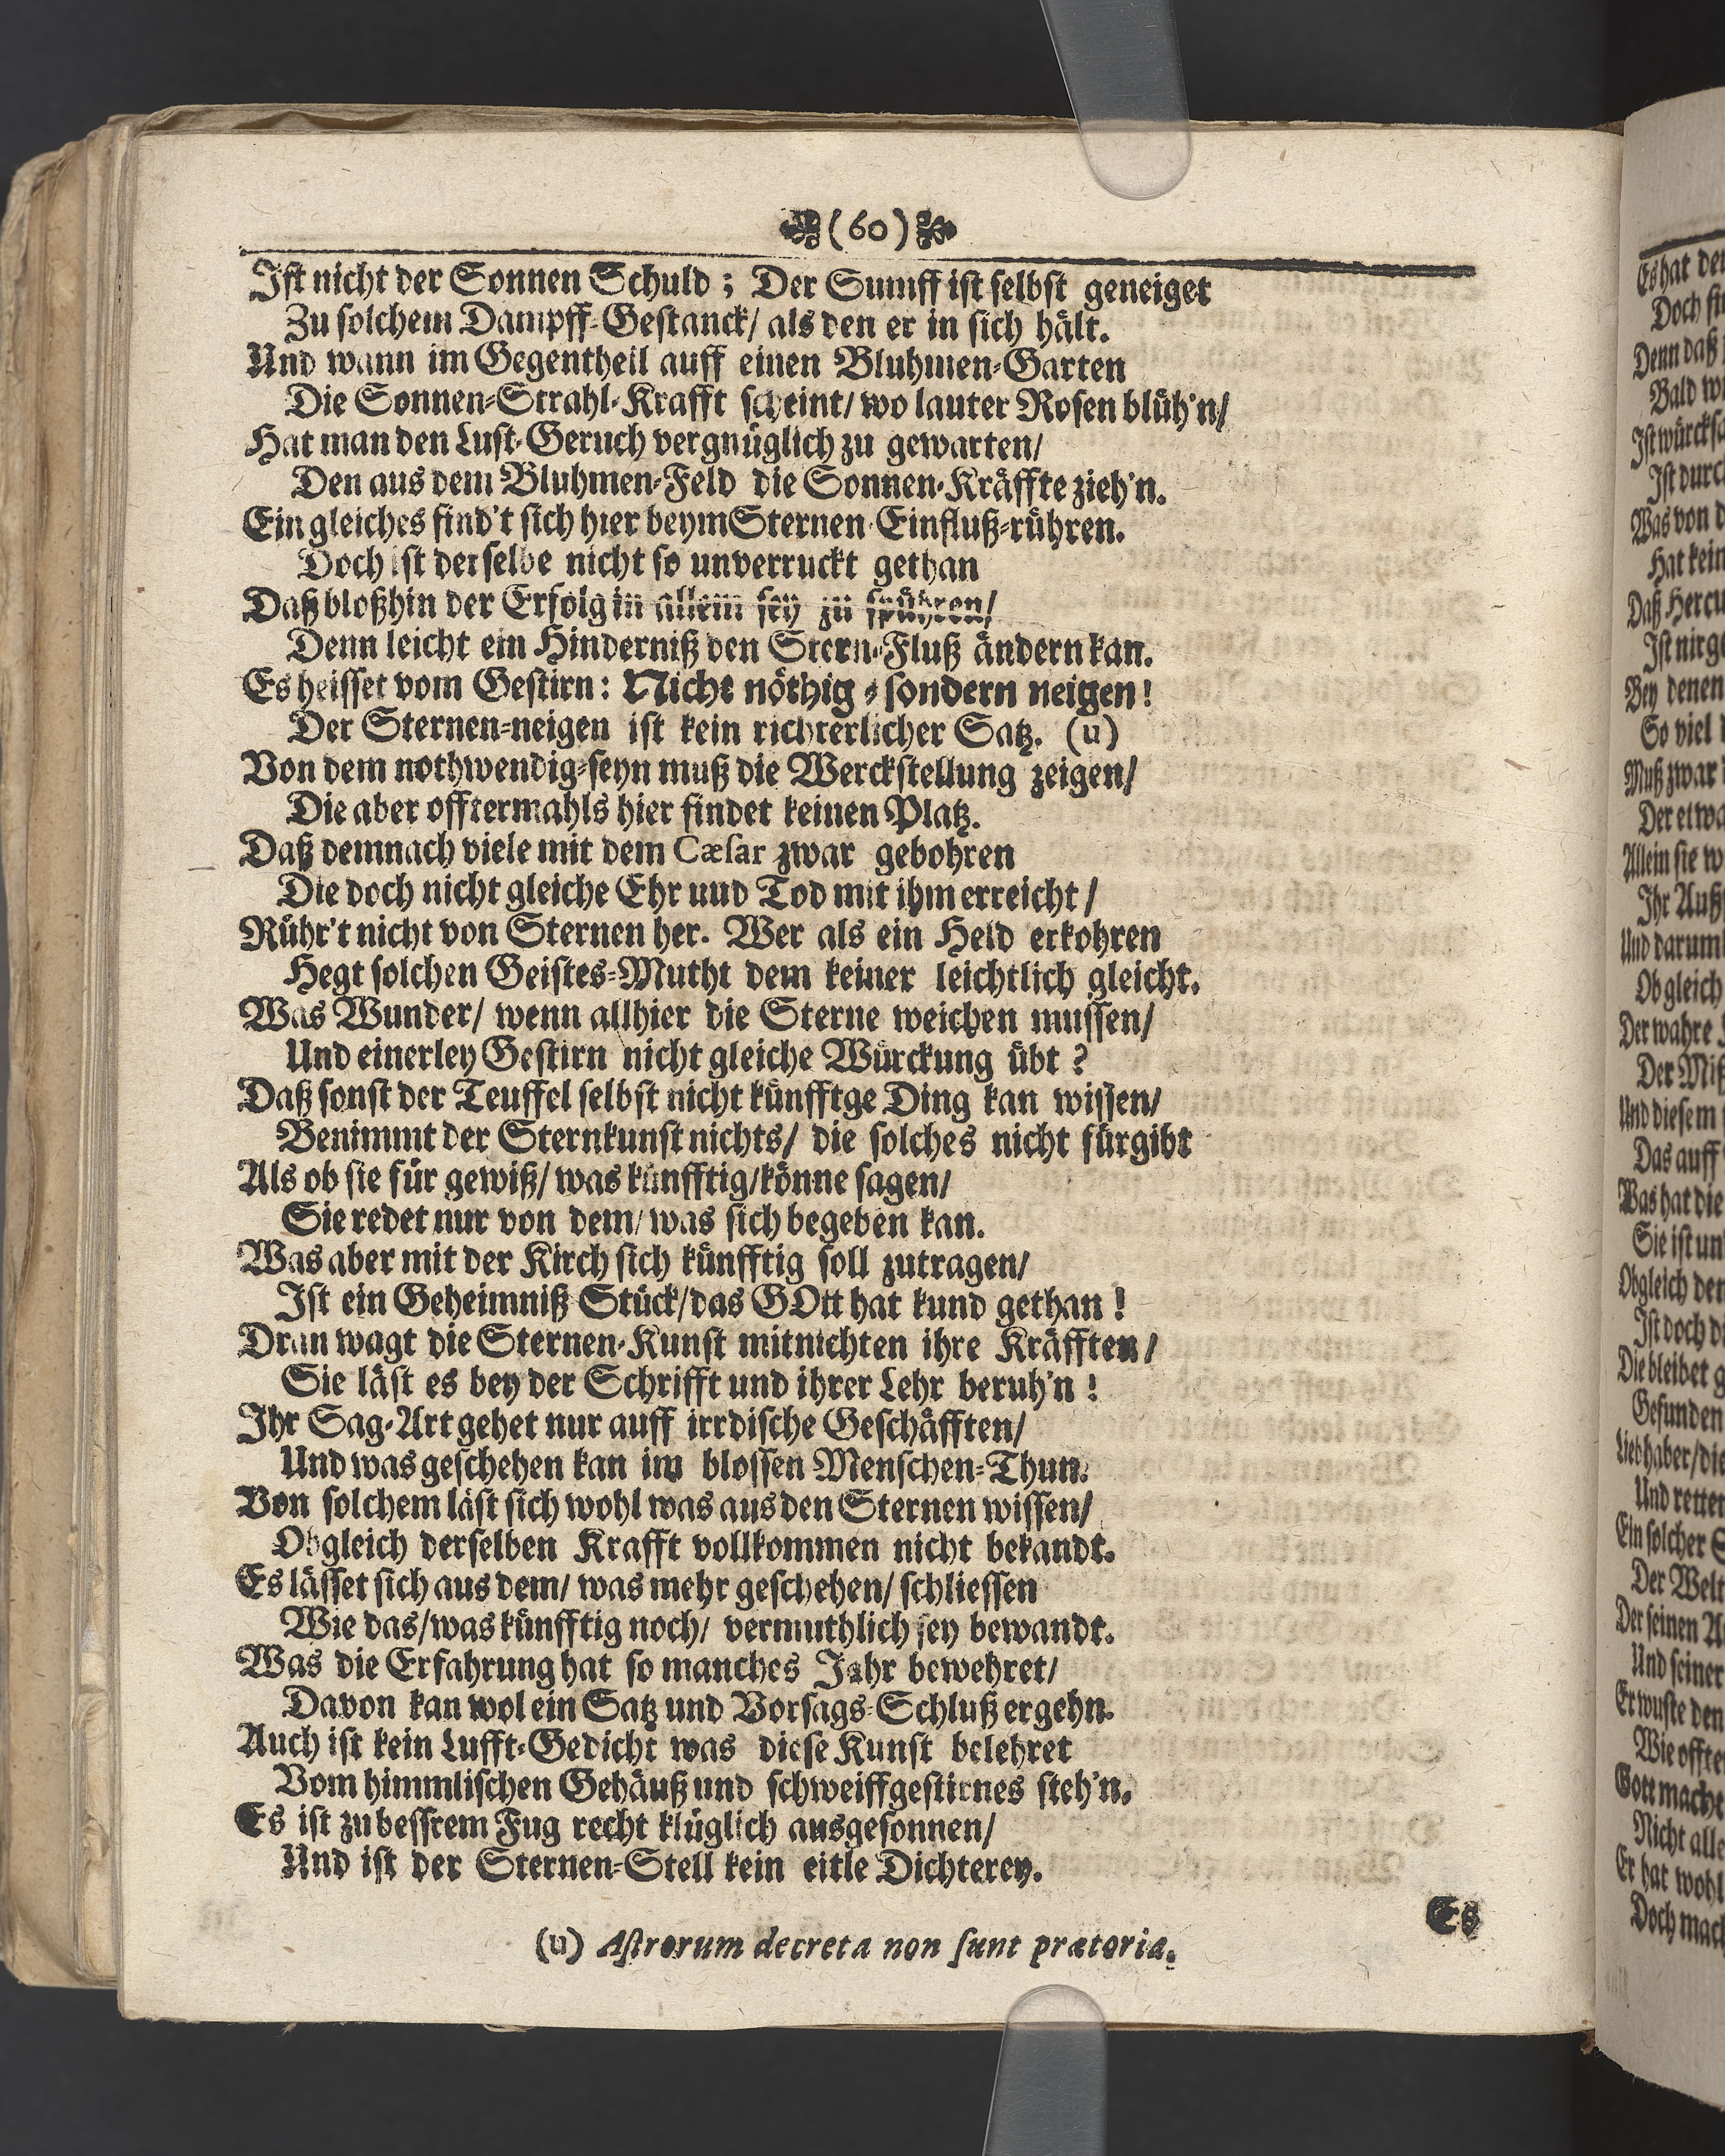 (60)
Ist nicht der Sonnen Schuld; Der Sumff ist selbst geneiget
Zu solchem Dampff-Gestanck/ als den er in sich hält.
Und wann im Gegentheil auff einen Bluhmen-Garten
Die Sonnen-Strahl-Krafft scheint/ wo lauter Rosen blüh'n/
Hat man den Lust-Geruch vergnüglich zu gewarten/
Den aus dem Bluhmen-Feld die Sonnen-Kräffte zieh'n.
Ein gleiches find't sich hier beym Sternen-Einfluß-rühren.
Doch ist derselbe nicht so unverruckt gethan
Daß bloßhin der Erfolg in allem sey zu spühren/
Denn leicht ein Hinderniß den Stern-Fluß ändern kan.
Es heisset vom Gestirn: Nicht nöthig-sondern neigen!
Der Sternen-neigen ist kein richterlicher Satz. (u)
Von dem nothwendig-seyn muß die Werckstellung zeigen/
Die aber offtermahls hier findet keinen Platz.
Daß demnach viele mit dem Cæsar zwar gebohren
Die doch nicht gleiche Ehr uud Tod mit ihm erreicht/
Rühr't nicht von Sternen her. Wer als ein Held erkohren
Hegt solchen Geistes-Mutht dem keiner leichtlich gleicht.
Was Wunder/ wenn allhier die Sterne weichen mussen/
Und einerley Gestirn nicht gleiche Würckung übt?
Daß sonst der Teuffel selbst nicht künfftge Ding kan wissen/
Benimmt der Sternkunst nichts/ die solches nicht fürgibt
Als ob sie für gewiß/ was künfftig/ könne sagen/
Sie redet nur von dem/ was sich begeben kan.
Was aber mit der Kirch sich künfftig soll zutragen/
Ist ein Geheimniß-Stück/ das GOtt hat kund gethan!
Dran wagt die Sternen-Kunst mitnichten ihre Kräfften/
Sie läst es bey der Schrifft und ihrer Lehr beruh'n!
Ihr Sag-Art gehet nur auff irrdische Geschäfften/
Und was geschehen kan im blossen Menschen-Thun.
Von solchem läst sich wohl was aus den Sternen wissen/
Obgleich derselben Krafft vollkommen nicht bekandt.
Es lässet sich aus dem/ was mehr geschehen/ schliessen
Wie das/ was künfftig noch/ vermuthlich sey bewandt.
Was die Erfahrung hat so manches Jahr bewehret/
Davon kan wol ein Satz und Vorsags-Schluß ergehn.
Auch ist kein Lufft-Gedicht was diese Kunst belehret
Vom himmlischen Gehäuß und schweiffgestirnes steh'n.
Es ist zu bessrem Fug recht klüglich ausgesonnen/
Und ist der Sternen-Stell kein eitle Dichterey.
Es
(u) Astrorum decreta non sunt prætoria.